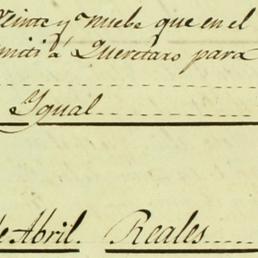 Veinte y nuebe que en el
miti â Queretaro para
Ygual
de Abril. Reales